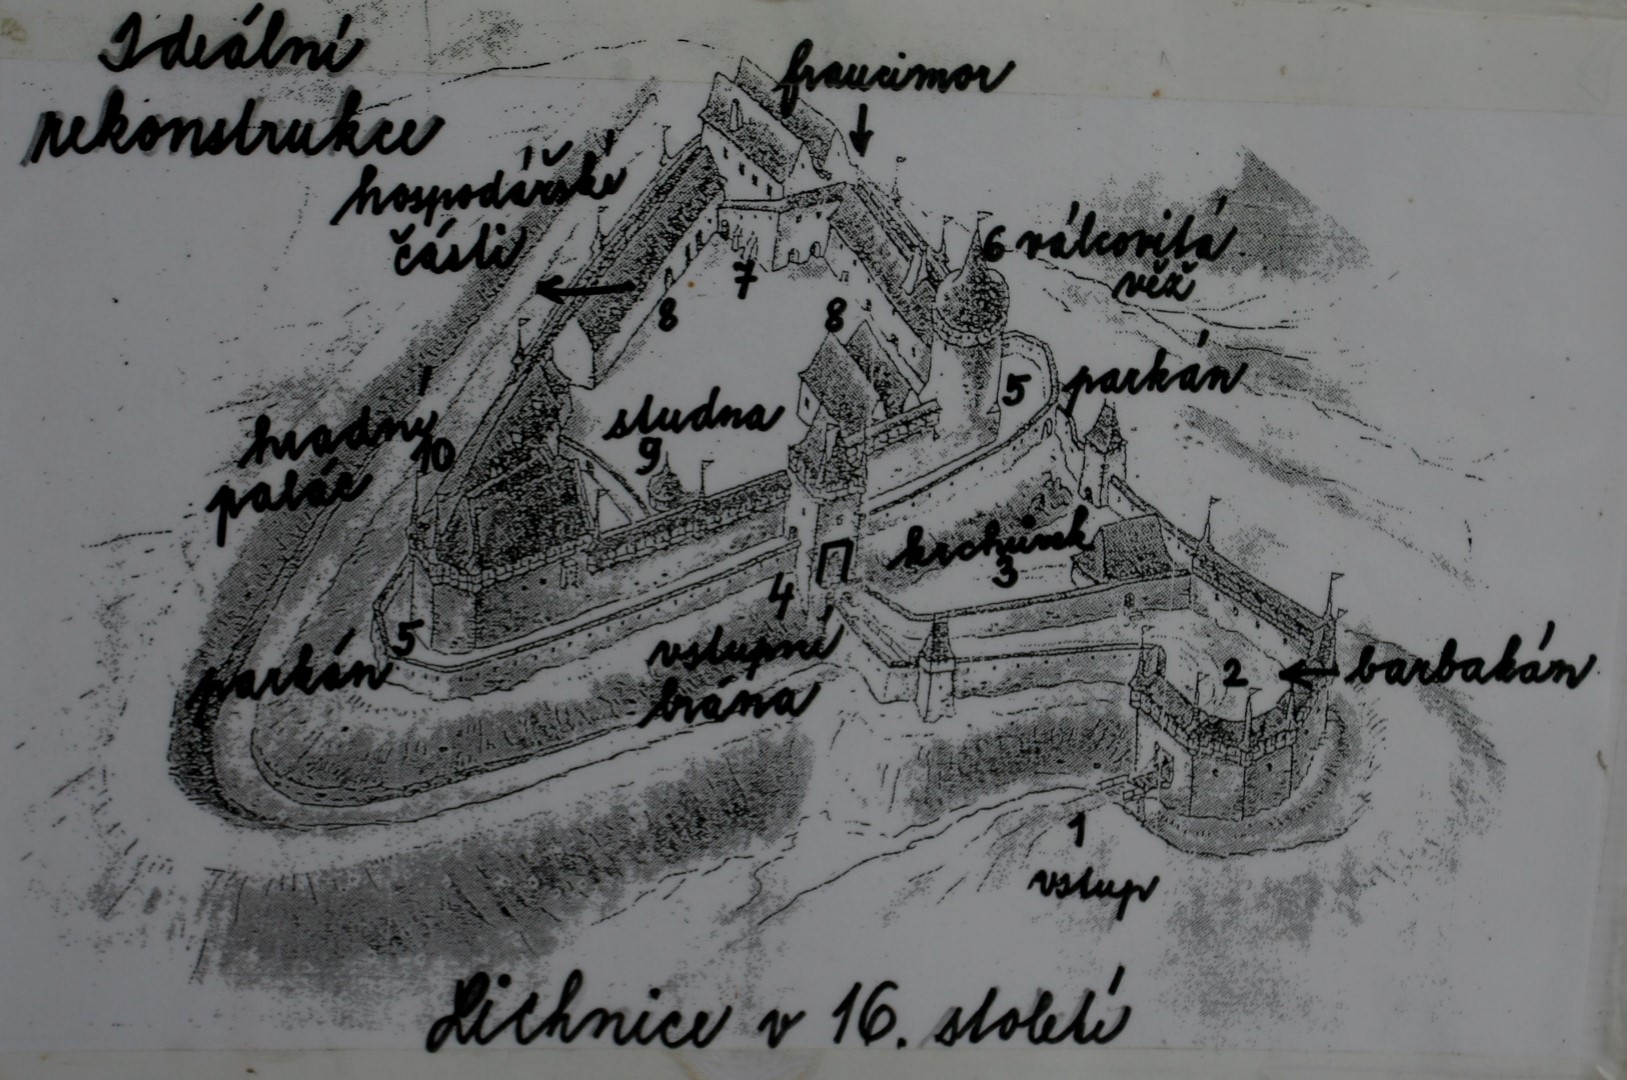 Ideální
rekonstrukce
fraucimor
hospodářské
části
6 válcovitá
věž
7
8
8
5 parkán
hradní
10
palác
studna
9
krchůvek
3
4
vstupní
brána
5
parkán
2
barbakán
1
vstup
Lichnice v 16. století